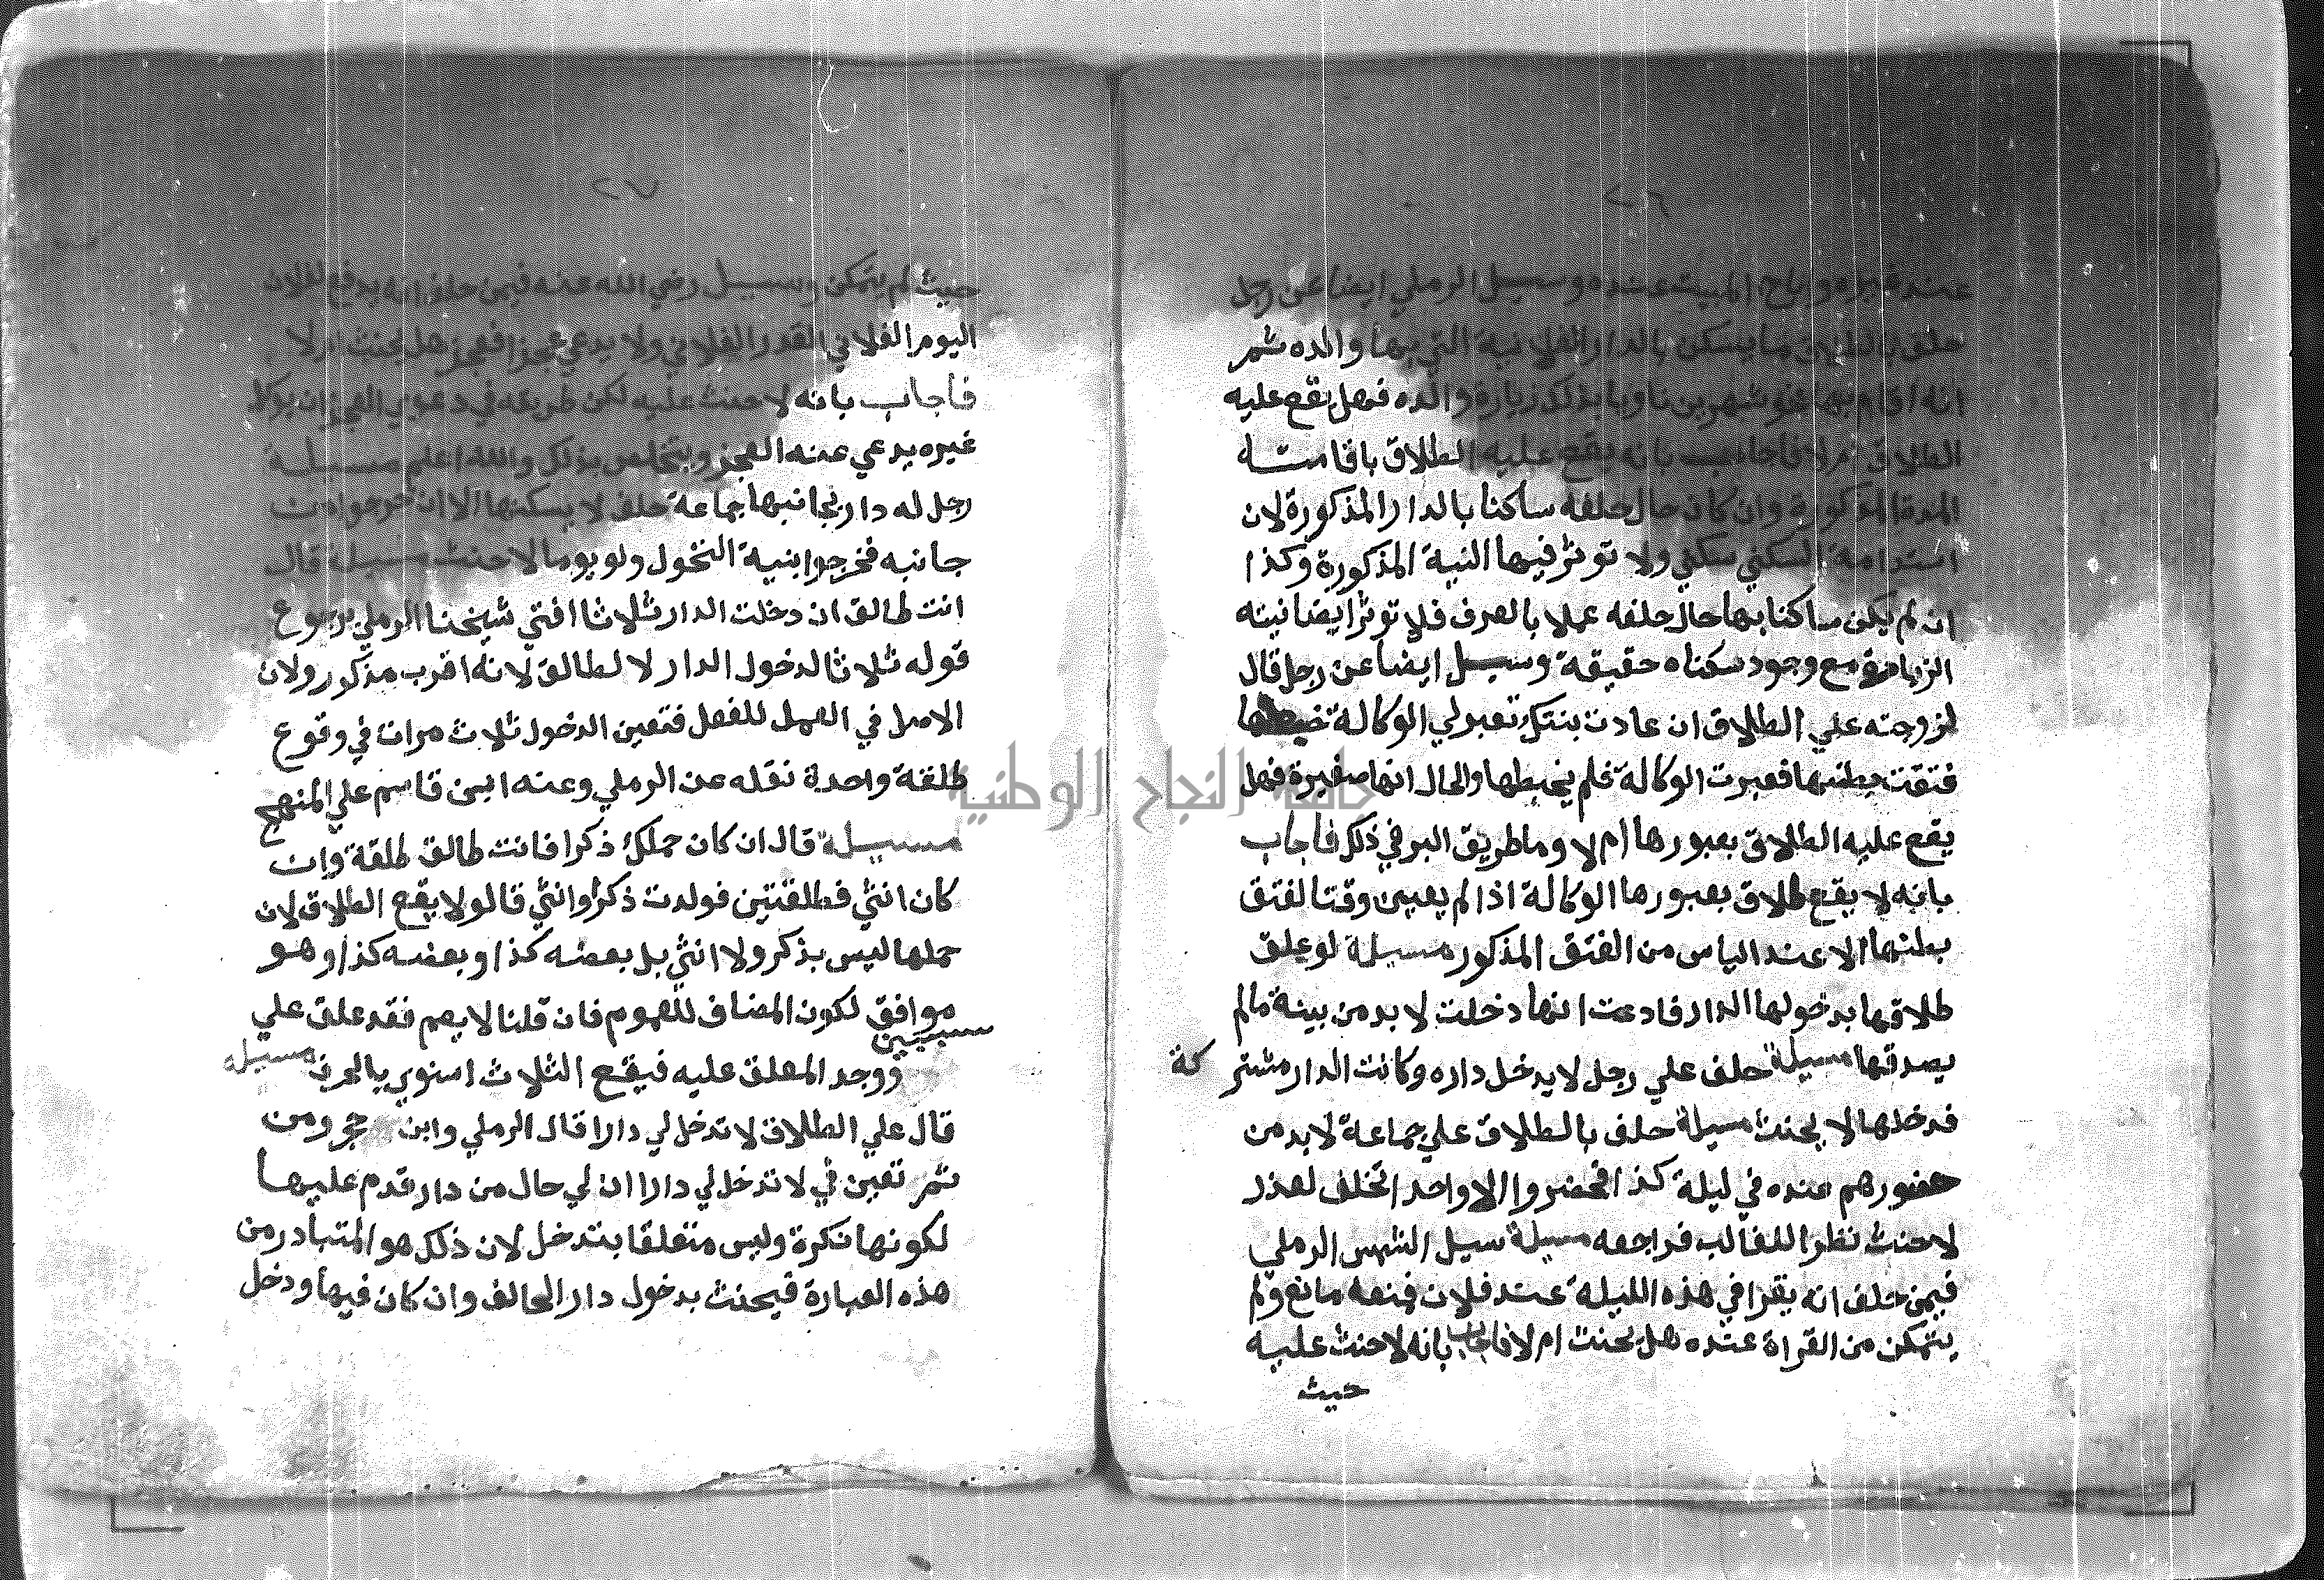 ٢٦
عنده غيره وراح المبيت عنده وسيل الرملي ايضا عن رجل
حلف بالطلاق ما يسكن بالدار الفلانية التي بها والده ثم
انه اقام بها نحو شهرين ناويا بذلك زيارة والده فهل يقع عليه
الطلاق ام لا فاجاب بانه يقع عليه الطلاق باقامته
المدة المذكورة وان كان حال حلفه ساكنا بالدار المذكورة لان
استدامة السكني سكني ولا توثر فيها النية المذكورة وكذا
ان لم يكن ساكنا بها حال حلفه عملا بالعرف فلا توثر ايضا نيته
الزيارة مع وجود سكناه حقيقة وسيل ايضا عن رجل قال
لزوجته علي الطلاق ان عادت بنتك تعبر لي الوكالة
فتقت بطنها فعبرت الوكالة فلم يخيطها والحال انها صغيرة فهل
يقع عليه الطلاق بعبورها ام لا وما طريق البر في ذلك فاجاب
بانه لا يقع طلاق بعبورها الوكالة اذا لم يعين وقتا لفتق
بطنها الا عند الياس من الفتق المذكور مسيلة لو علق
طلاقها بدخولها الدار فادعت انها دخلت لا بد من بينة مالم
يصدقها مسيلة حلف علي رجل لا يدخل داره وكانت الدار مشتركة
فدخلها لا يحنث مسيلة حلف بالطلاق علي جماعة لا بد من
حضورهم عنده في ليلة كذا فحضروا الا واحد اتخلف لعذر
لا حنث نظرا للغالب فراجعه مسيلة سيل الشمس الرملي
فيمن حلف انه يقرا في هذه الليلة عند فلان فمنعه مانع ولم
يتمكن من القراة عنده هل يحنث ام لا فاجاب بانه لا حنث عليه
حيث
٢٧
حيث لم يتمكن وسيل رضي الله عنه فيمن حلف انه يدفع لفلان
اليوم الفلاني القدر الفلاني ولا يدعي عجزا فعجز هل يحنث ام لا
فاجاب بانه لا حنث عليه لكن طريقه في دعوي العجز ان يوكل
غيره يدعي عنه العجز ويتخلص بذلك والله اعلم مسيلة
رجل له دار بجانبها جماعة حلف لا يسكنها الا ان خرجوا من
جانبه فخرجوا بنية التحول ولو يوما لا حنث مسيلة قال
انت طالق ان دخلت الدار ثلاثا افتي شيخنا الرملي برجوع
قوله ثلاثا لدخول الدار لا لطالق لانه اقرب مذكور ولان
الاصل في العمل للفعل فتعين الدخول ثلاث مرات في وقوع
طلقة واحدة نقله عن الرملي وعنه ابن قاسم علي المنهج
مسيلة قال ان كان حملك ذكرا فانت طالق طلقة وان
كان انثي فطلقتين فولدت ذكرا وانثي قالو لا يقع الطلاق لان
حملها ليس بذكر ولا انثي بل بعضه كذا وبعضه كذا وهو
موافق لكون المضاف للعموم فان قلنا لا يعم فقد علق علي
سببين
ووجد المعلق عليه فيقع الثلاث اسنوي بالحرف مسيلة
قال علي الطلاق لا تدخل لي دارا قال الرملي وابن حجر ومن
ثم تعين في لا تدخل لي دارا ان لي حال من دار قدم عليها
لكونها نكرة وليس متعلقا بتدخل لان ذلك هو المتبادر من
هذه العبارة فيحنث بدخول دار الحالف وان كان فيها ودخل
جامعة النجاح الوطنية